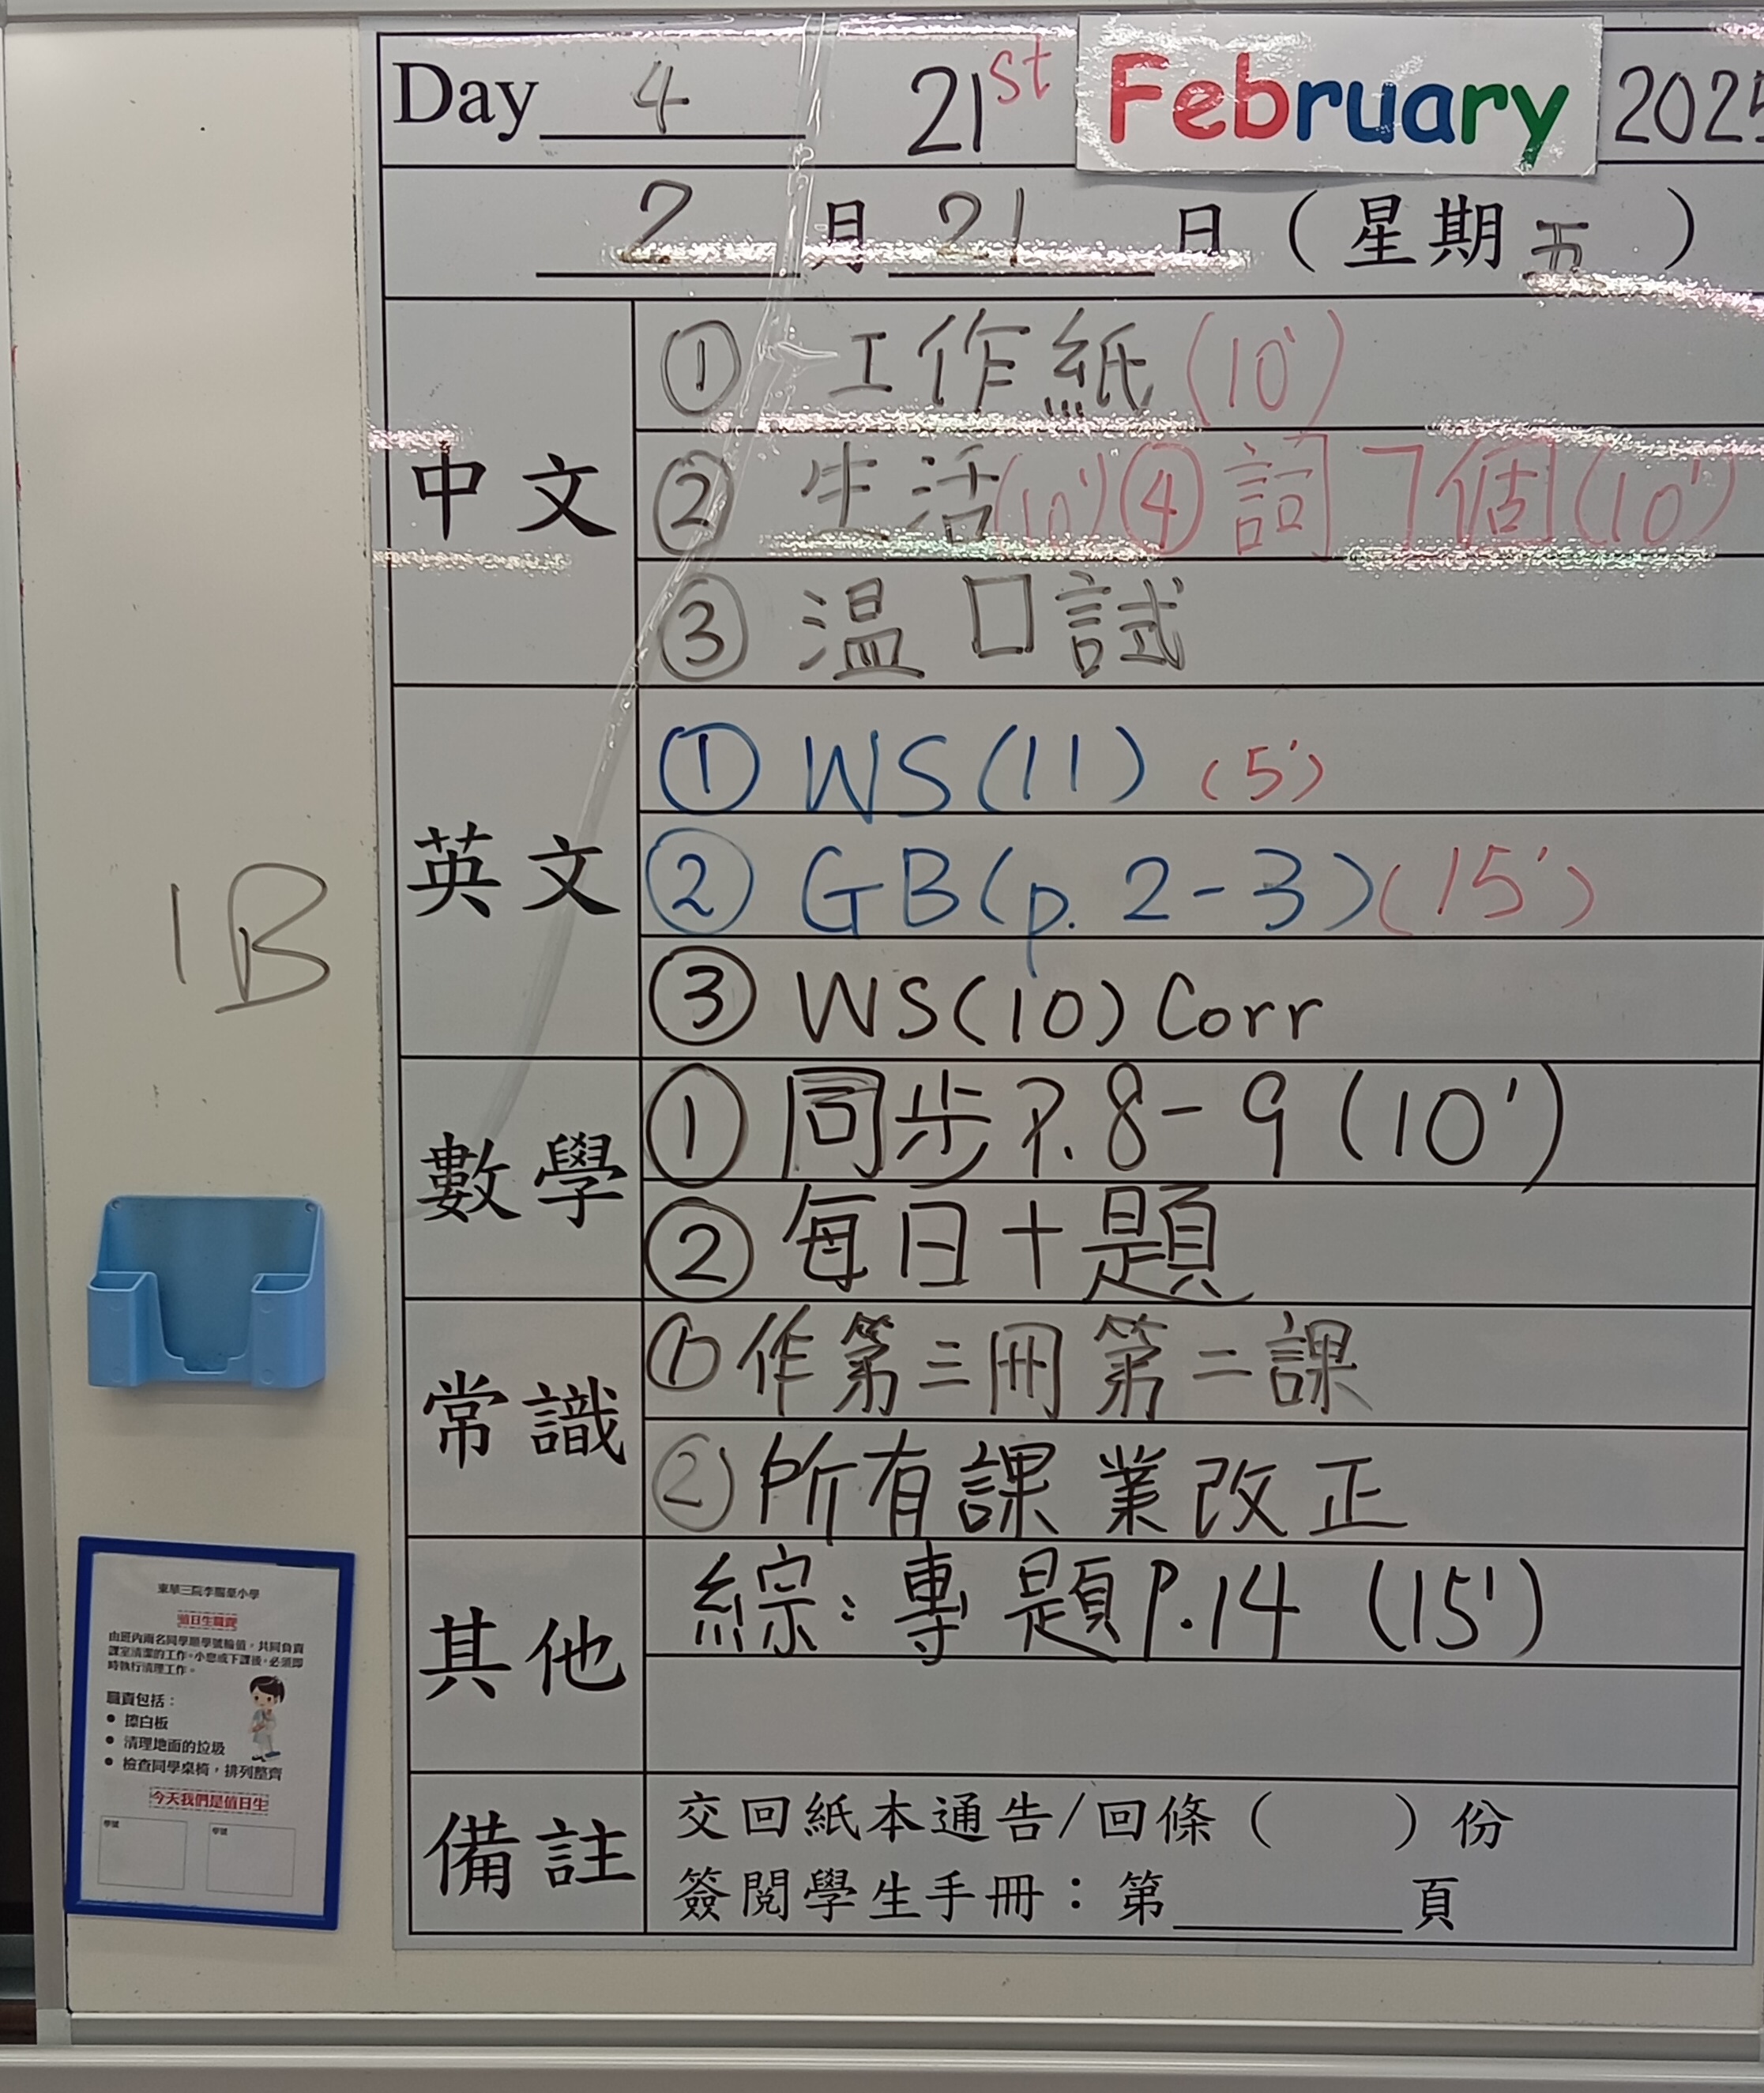 Day 4 21st February 2025
2 月 21 日 (星期五)
中文
① 工作紙 (10')
② 生活 (10') ④ 詞 7個 (10')
③ 温口試
英文
① WS (11) (5')
② GB (p. 2-3) (15')
③ WS (10) Corr
數學
① 同步 P. 8-9 (10')
② 每日十題
常識
① 作第三冊第二課
② 所有課業改正
其他
綜: 專題 P.14 (15')
備註
交回紙本通告/回條 ( ) 份
簽閱學生手冊：第______頁
1B
值日生職責
由班內兩名同學順學號輪值，共同負責
課室清潔的工作。小息或下課後，必須即
時執行清理工作。
職責包括：
• 擦白板
• 清理地面的垃圾
• 檢查同學桌椅，排列整齊
今天我們是值日生
學號 學號